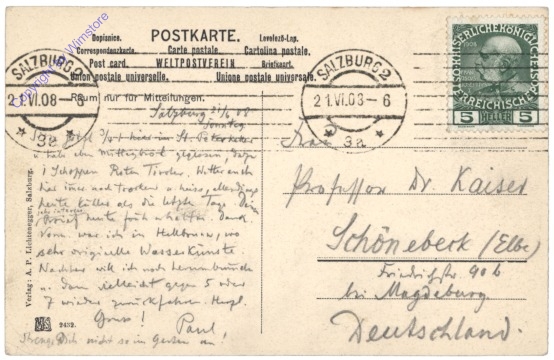 Copyright by Wimstore
POSTKARTE.
Dopisnice. Levelező-Lap.
Correspondenzkarte. Carte postale. Cartolina postale.
Post card. WELTPOSTVEREIN Briefkaart.
Union postale universelle. Unione postale universale.
Raum nur für Mitteilungen.
SALZBURG 2
21.VI.08-6
* 3a *
SALZBURG 2
21.VI.08-6
* 3a *
KAISERLICHE KÖNIGLICHE
ÖSTERREICHISCHE POST
5 HELLER 5
Salzburg 21/6 08
Sonntag
hier im St. Peterskeller
u. hab den Mittagbrot gegessen, dazu
1 Schoppen Roten Tiroler. Wetter auch
hier immer noch trocken u. heiss, allerdings
heute kühler als die letzten Tage. Dein
Brief heute früh erhalten. Dank
Vorm. war ich in Hellbrunn, wo
sehr originelle Wasserkünste
Nachher will ich noch herumbummeln
u. dann vielleicht gegen 5 oder
7 wieder zurückfahren. Herzl.
Gruss! Paul
Dich nicht so im Garten an!
Frau
Professor Dr. Kaiser
Schönebeck (Elbe)
Friedrichstr 90 b
bei Magdeburg
Deutschland.
Verlag: A. P. Lichtenegger, Salzburg.
2432.